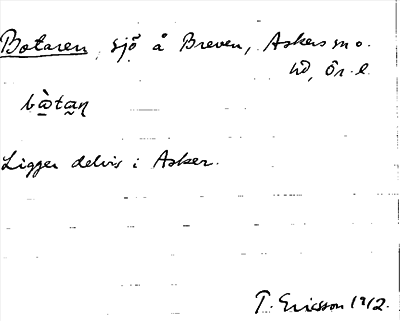 Botaren, sjö å Breven, Askers sn o.
hd, Ör. l.
bò̲ta̲n̥
Ligger delvis i Asker.
T. Ericsson 1912.